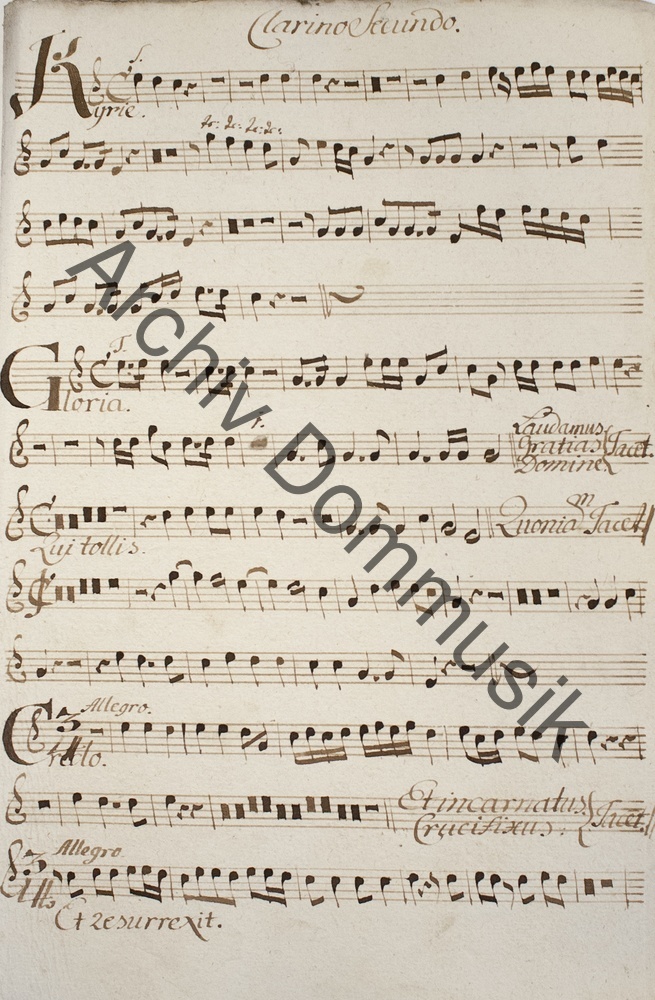 Clarino Secundo.
Kyrie.
f.
tr: tr: tr: tr:
Gloria.
f.
f.
Laudamus
Gratias
Domine
Tacet.
Qui tollis.
Quoniam Tacet
Allegro.
Credo.
Et incarnatus
Crucifixus:
Tacet.
Allegro
Et Resurrexit.
Archiv Dommusik